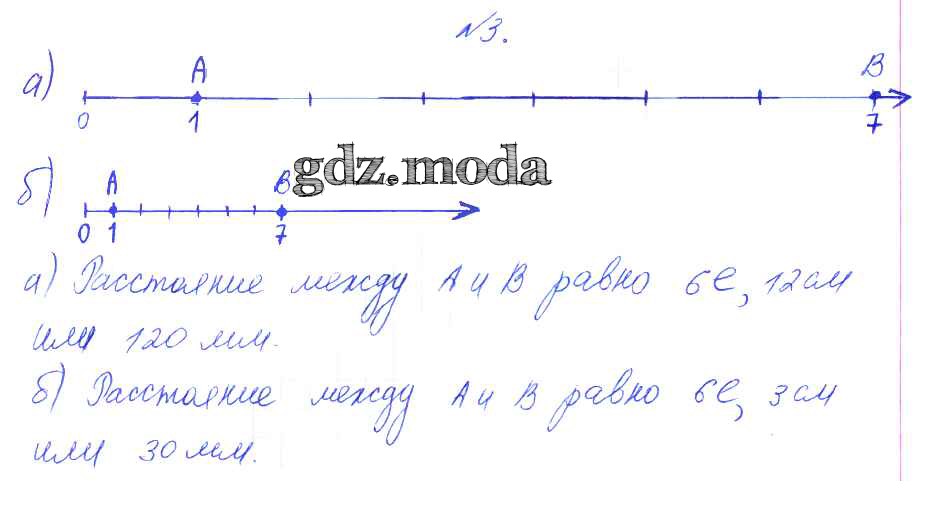 №3.
а) A B
0 1 7
gdz.moda
б) A B
0 1 7
а) Расстояние между A и B равно 6е, 12 см
или 120 мм.
б) Расстояние между A и B равно 6е, 3 см
или 30 мм.